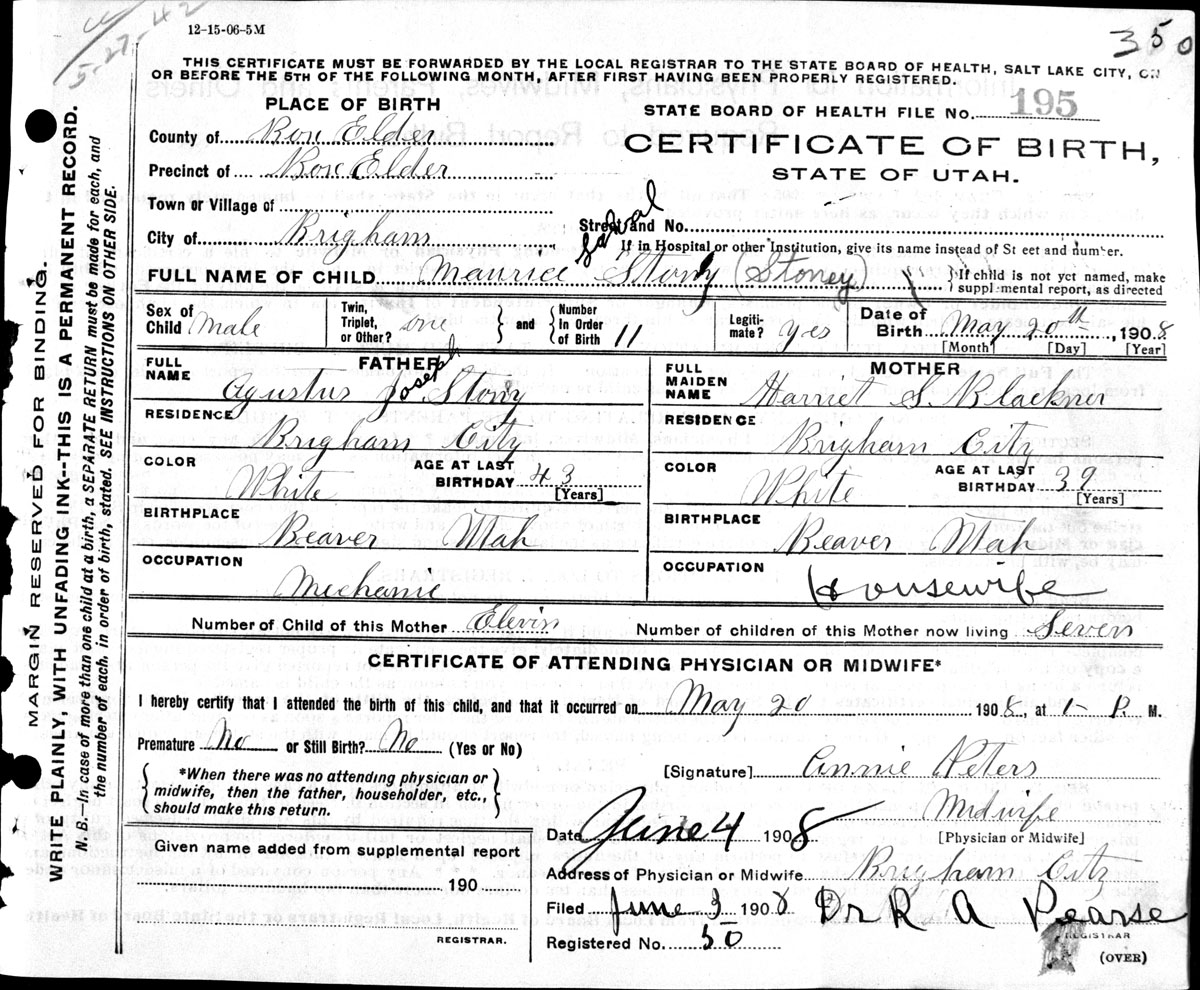 5-27-42
12-15-06-5M
350
THIS CERTIFICATE MUST BE FORWARDED BY THE LOCAL REGISTRAR TO THE STATE BOARD OF HEALTH, SALT LAKE CITY, ON
OR BEFORE THE 5TH OF THE FOLLOWING MONTH, AFTER FIRST HAVING BEEN PROPERLY REGISTERED.
PLACE OF BIRTH
STATE BOARD OF HEALTH FILE NO. 195
County of Box Elder
CERTIFICATE OF BIRTH,
Precinct of Box Elder
STATE OF UTAH.
Town or Village of
City of Brigham
Street and No.
If in Hospital or other Institution, give its name instead of St eet and number.
FULL NAME OF CHILD Maurice Stony (Stoney)
{If child is not yet named, make
supplemental report, as directed
Sex of Child Male
Twin, Triplet, or Other? one
and
Number In Order of Birth 11
Legiti- mate? yes
Date of Birth May 20th, 1908
[Month] [Day] [Year]
FATHER
FULL NAME
Agustus Joseph Stony
RESIDENCE
Brigham City
COLOR
White
AGE AT LAST BIRTHDAY 43
[Years]
BIRTHPLACE
Beaver Utah
OCCUPATION
Mechanic
MOTHER
FULL MAIDEN NAME Harriet S. Blackner
RESIDENCE
Brigham City
COLOR
White
AGE AT LAST BIRTHDAY 39
[Years]
BIRTHPLACE
Beaver Utah
OCCUPATION
Housewife
Number of Child of this Mother Elevin
Number of children of this Mother now living Seven
CERTIFICATE OF ATTENDING PHYSICIAN OR MIDWIFE*
I hereby certify that I attended the birth of this child, and that it occurred on May 20 1908, at 1- P. M.
Premature No or Still Birth? No (Yes or No)
*When there was no attending physician or
midwife, then the father, householder, etc.,
should make this return.
[Signature] Annie Peters
Midwife
[Physician or Midwife]
Date June 4 1908
Given name added from supplemental report
190
REGISTRAR.
Address of Physician or Midwife Brigham City
Filed June 3 1908
Dr R A Pearse
REGISTRAR
Registered No. 50
(OVER)
MARGIN RESERVED FOR BINDING.
WRITE PLAINLY, WITH UNFADING INK--THIS IS A PERMANENT RECORD.
N. B.—In case of more than one child at a birth, a SEPARATE RETURN must be made for each, and
the number of each, in order of birth, stated. SEE INSTRUCTIONS ON OTHER SIDE.